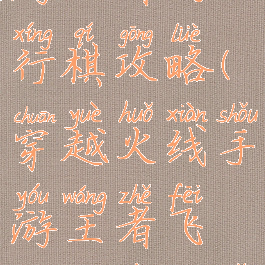 xíng qí gōng lüè
行棋攻略(
chuān yuè huǒ xiàn shǒu
穿越火线手
yóu wáng zhě fēi
游王者飞